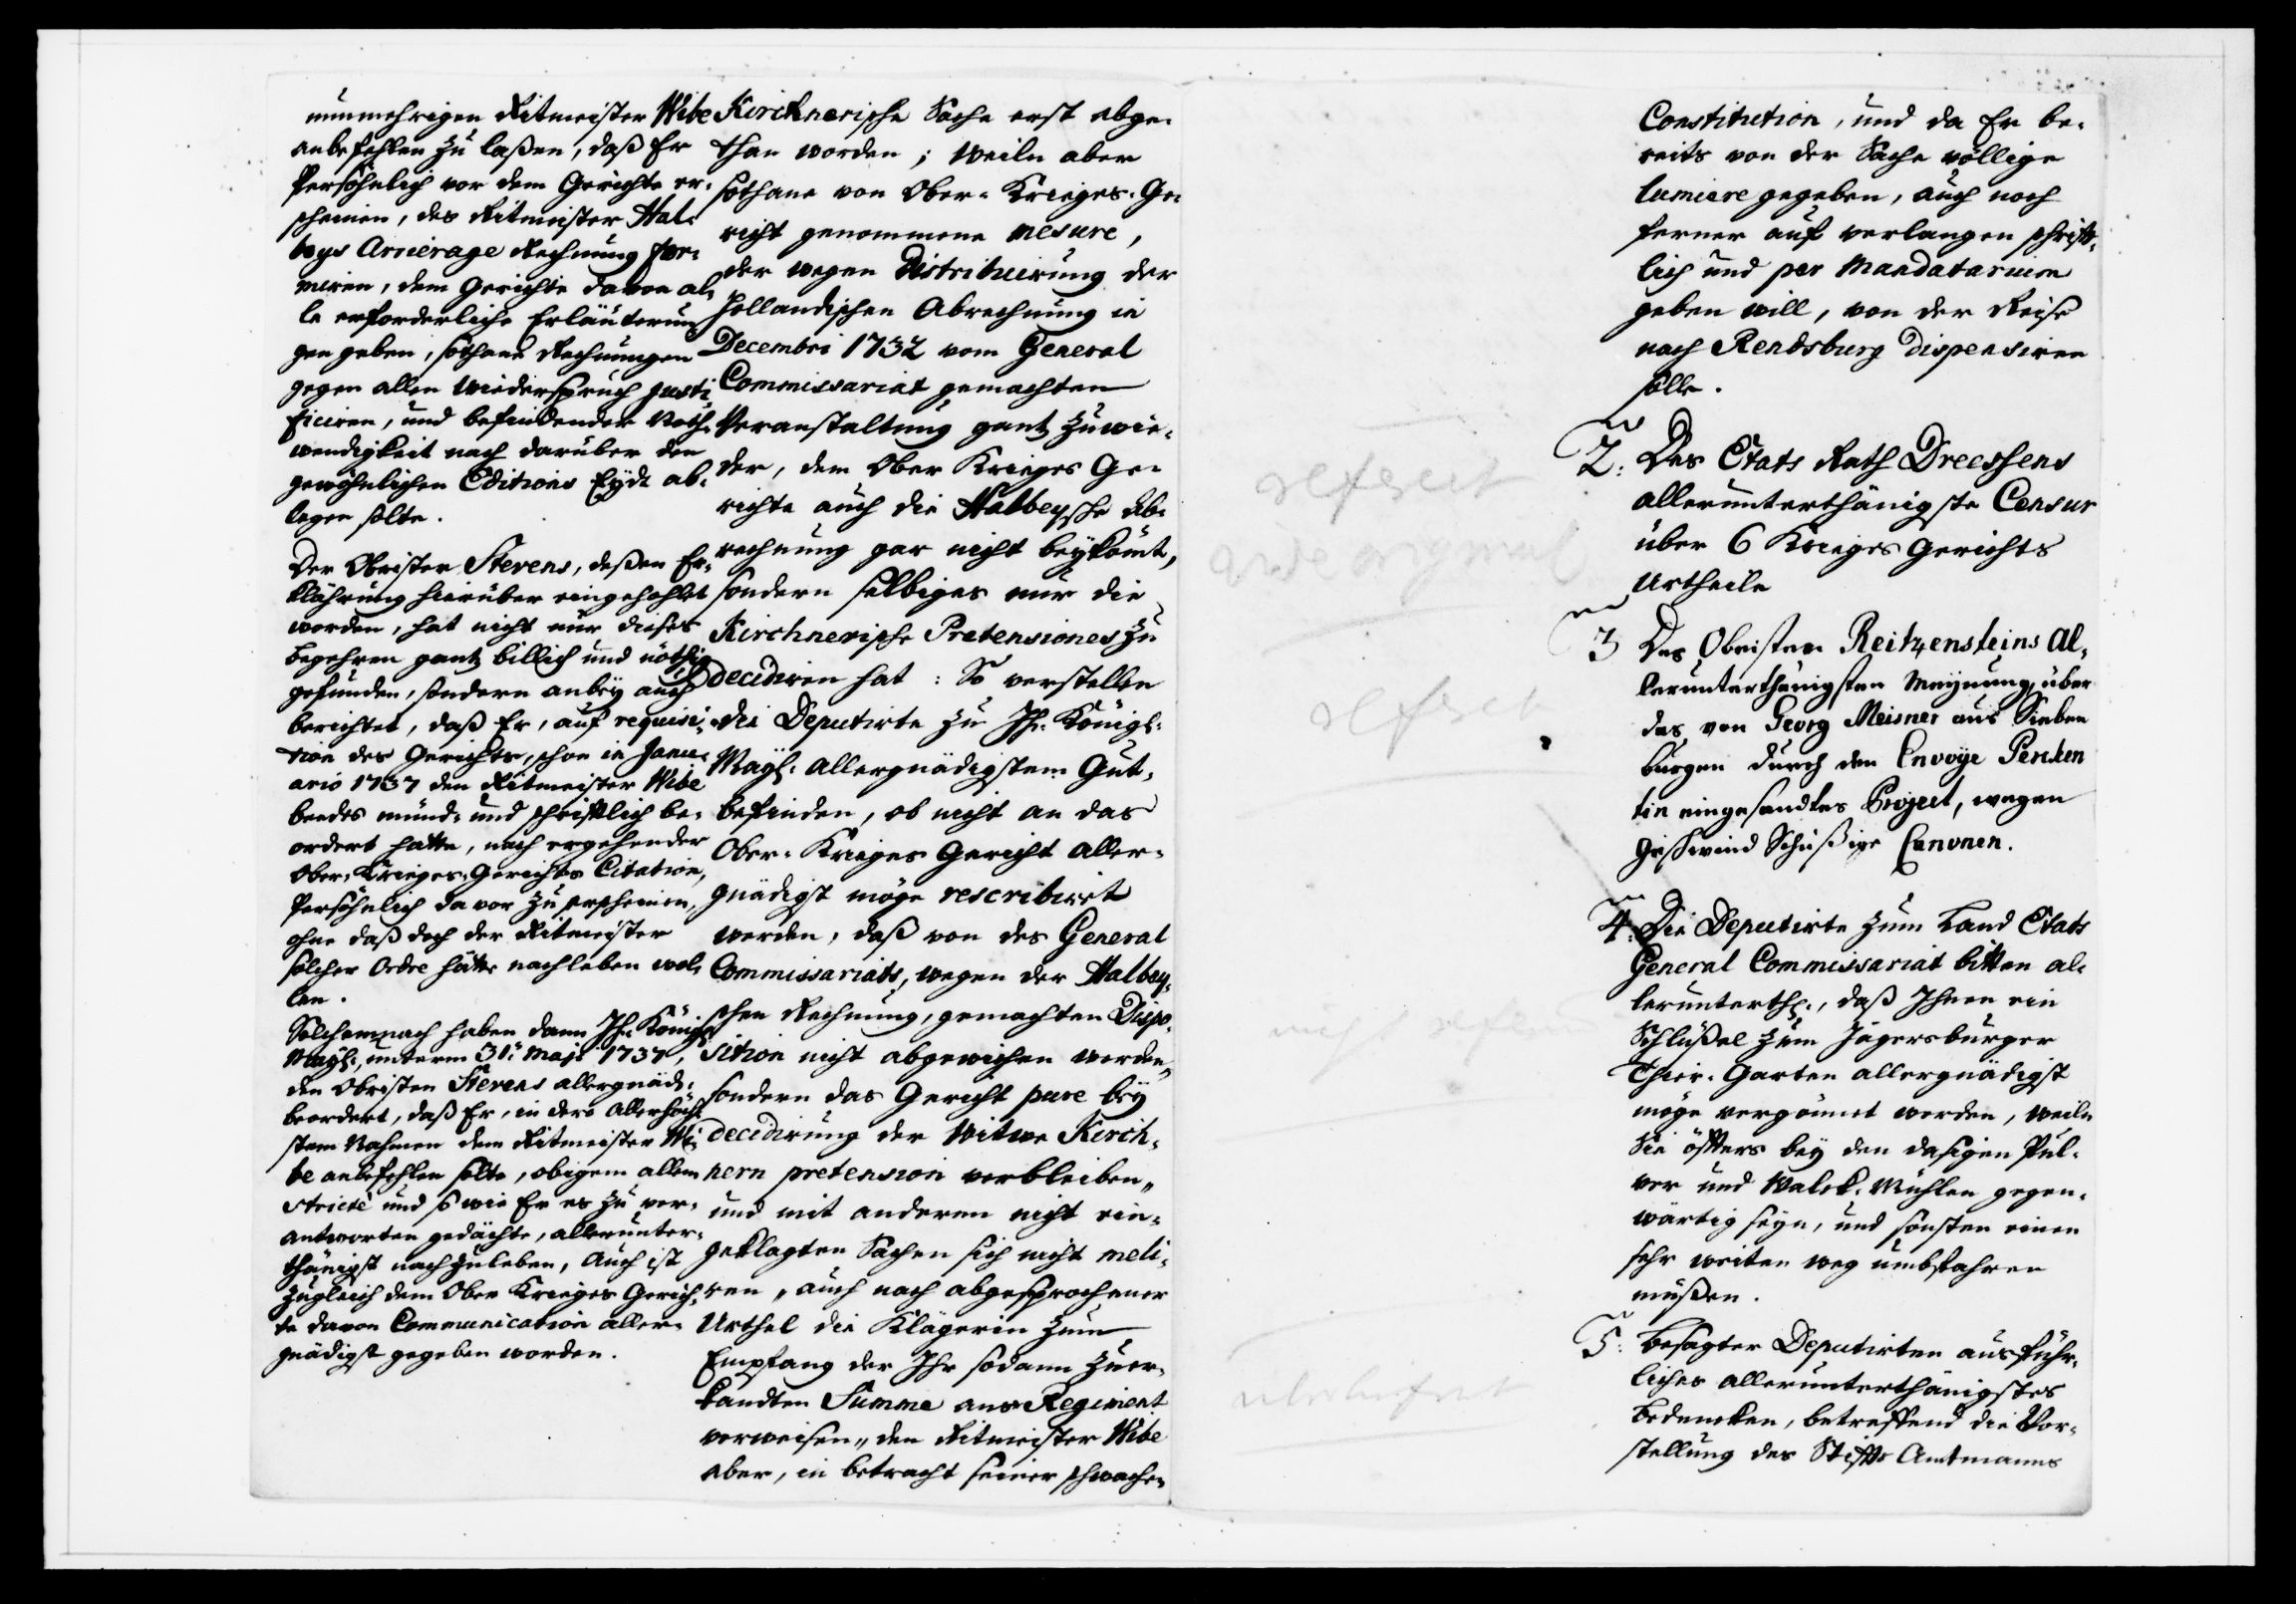 nunmehrigen Ritmeister Wibe
anbefehlen zu laßen, daß Er
Persöhnlich vor dem Gerichte er-
scheinen, des Ritmeister Hal-
beys Arrierage Rechnung for-
miren, dem Gerichte davon al-
le erforderliche Erläuterun-
gen geben, sothane Rechnungen
gegen allen Wiederspruch justi-
ficiren, und befindender Noth-
wendigkeit nach darüber den
gewöhnlichen Editions Eyd ab-
legen solte.
Der Obrister Stevens, deßen Er-
klährung hierüber eingehohlet
worden, hat nicht nur dieses
begehren gantz billich und nöthig
gefunden, sondern anbey auch
berichtet, daß Er, auf requisi-
tion des Gerichts, schon in Janu-
ario 1737 den Ritmeister Wibe
beedes münd- und schrifftlich be-
ordert hatte, nach ergehender
Ober-Krieges-Gerichts Citation,
Persöhnlich davor zu erscheinen,
ohne daß doch der Ritmeister
solcher Ordre hätte nachleben wol-
len.
Solchemnach haben dann Ih: Königl:
Mayt:, unterm 31ten Maji 1737,
den Obristen Stevens allergnäd:
beordert, daß Er, in dero Allerhöch-
stem Nahmen dem Ritmeister Wi-
be anbefehlen solte, obigem allem
stricté und so wie Er es zu ver-
antworten gedächte, allerunter-
thänigst nachzuleben, Auch ist
zugleich dem Ober Krieges Gerich-
te davon Communication aller-
gnädigst gegeben worden.
Kirchnerische Sache erst abge-
than worden; Weiln aber
sothane von Ober-Krieges-Ge-
richt genommene mesure,
der wegen Distribuirung der
Holländischen Abrechnung in
Decembri 1732 vom General
Commissariat gemachten
Veranstaltung gantz zuwie-
der, dem Ober Krieges Ge-
richte auch die Halbeysche Ab-
rechnung gar nicht beykömt,
sondern selbiges nur die
Kirchnerische Pretensiones zu
decidiren hat: So verstellen
die Deputirte zu Ih: Königl:
Mayt: Allergnädigstem Gut-
befinden, ob nicht an das
Ober-Krieges Gericht aller-
gnädigst möge rescribiret
werden, daß von des General
Commissariats, wegen der Halbey-
schen Rechnung, gemachten Dispo-
sition nicht abgewichen werden,
sondern das Gericht pure bey
decidirung der Witwe Kirch-
nern pretension verbleiben,,
und mit anderen nicht ein-
geklagten Sachen sich nicht meli-
ren,, auch nach abgesprochener
Urthel die Klägerin zum
Empfang der Ihr sodann zuer-
kandten Summe ans Regiment
verweisen,, den Ritmeister Wibe
aber, in betracht seiner schwachen
Constitution, und da Er be-
reits von der Sache völlige
lumiere gegeben, auch noch
ferner auf verlangen schrifft-
lich und per Mandatarium
geben will, von der Reise
nach Rendsburg dispensiren
solle.
referirt
2: Des Etats Rath Dreessens
allerunterthänigste Censur
über 6 Krieges Gerichts
Urtheile
3 Des Obristen Reitzensteins Al-
lerunterthänigsten Meynung, über
das von Georg Meisner aus Sieben
bürgen durch den Envoye
eingesandtes Project, wegen
Geschwind Schüßige Canonen.
4: Die Deputirte zum Land Etats
General Commissariat bitten al-
lerunterth:, daß Ihnen ein
Schlüßel zum Jägersburger
Thier-Garten allergnädigst
möge vergönnet werden, weiln
Sie öffters bey den dasigen Pul-
ver und Walck-Mühlen gegen-
wärtig seyn, und sonsten einen
sehr weiten weg umbfahren
müßen.
5: Besagter Deputirten ausführ-
liches allerunterthänigstes
Bedencken, betreffend die Vor-
stellung des Stiffts Amtmanns